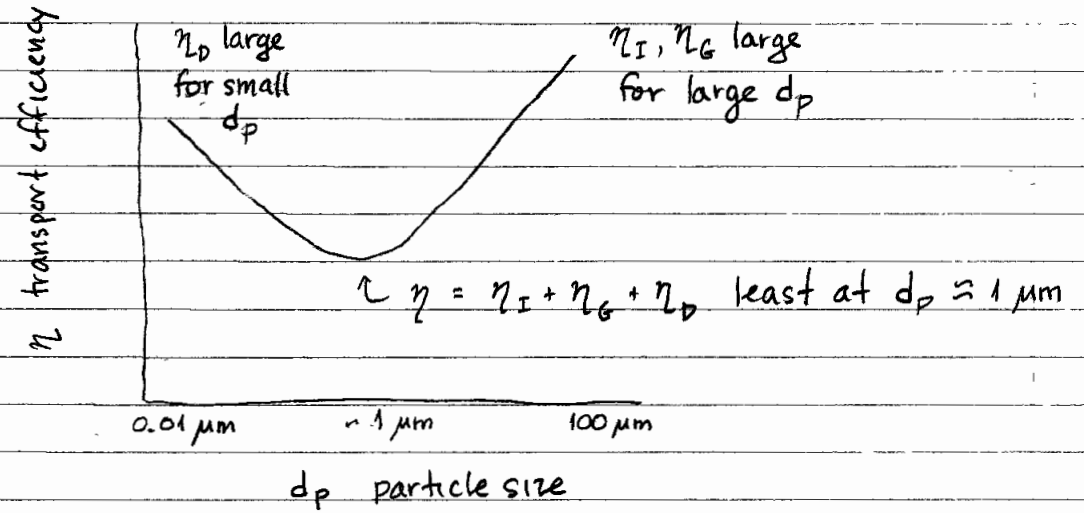 η transport efficiency
η_D large
for small
d_p
η_I, η_G large
for large d_p
η = η_I + η_G + η_D least at d_p ≈ 1 μm
0.01 μm
~ 1 μm
100 μm
d_p particle size